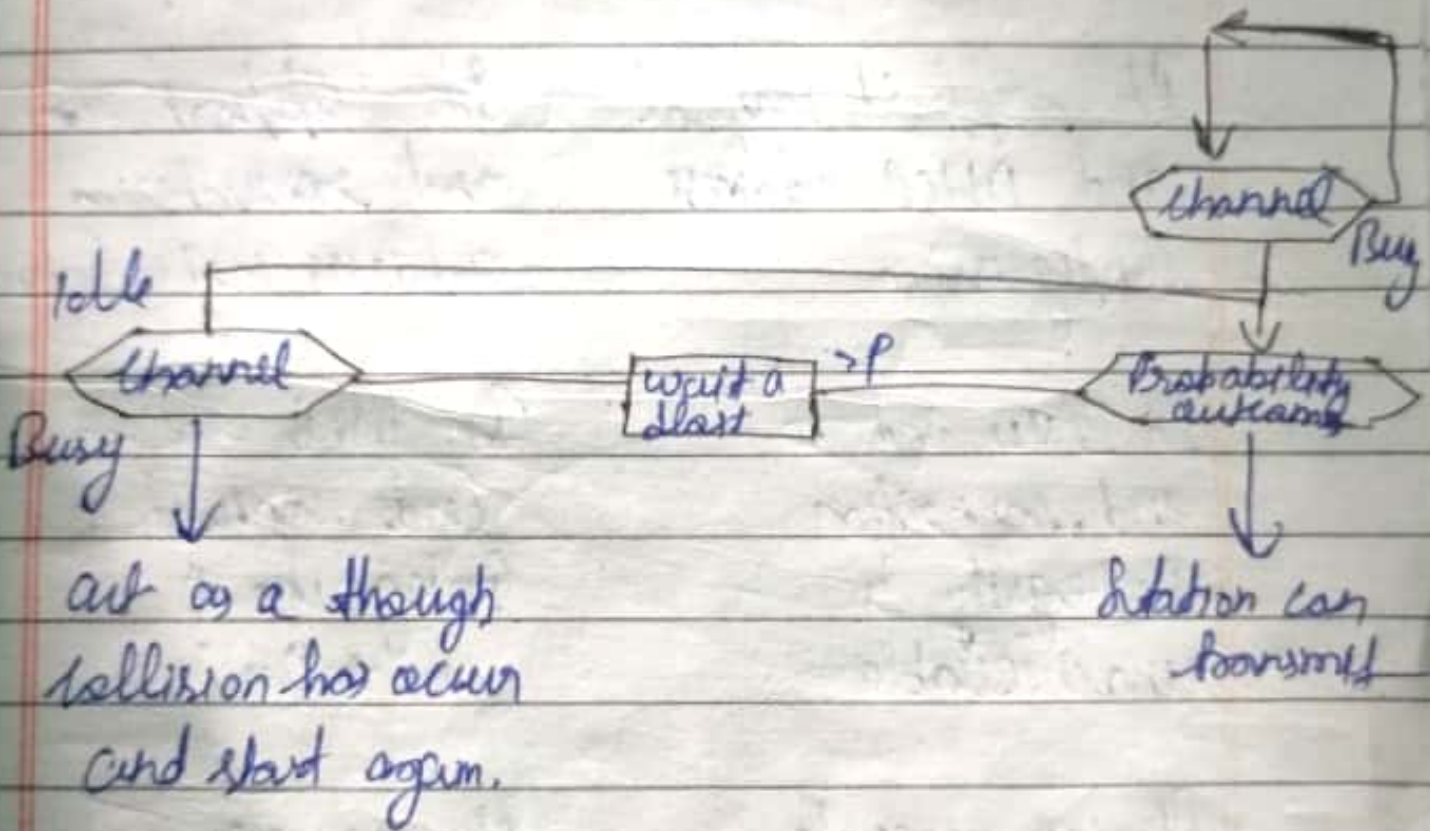 Channel
Busy
Idle
Channel
wait a
slot
>P
Probability
outcome
Busy
act as a though
collision has occur
and start again.
Station can
transmit